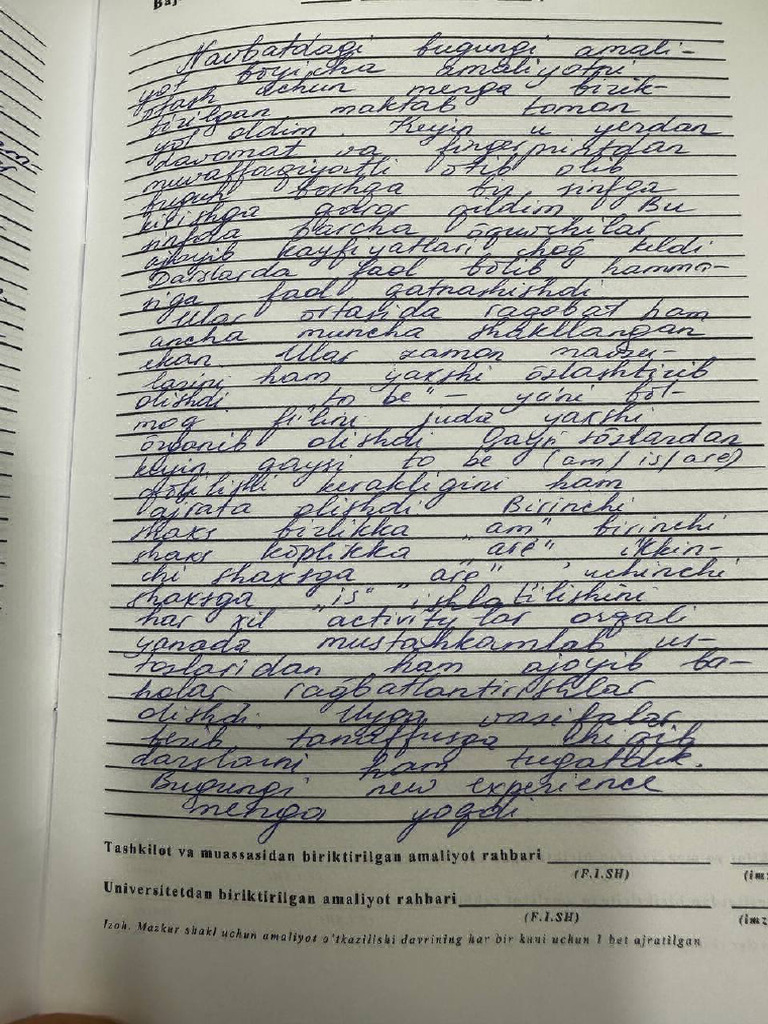 Navbatdagi bugungi amali-
yot bõyicha amaliyotni
õtash uchun menga birik-
tirilgan maktab tomon
yol oldim. Keyin u yerdan
davomat va fingerprintdan
muvaffaqiyatli õtib olib
bugun boshqa bir sinfga
kirishga qaror qildim. Bu
sinfda barcha õquvchilar
ajoyib kayfiyatlari chog keldi
Darslarda faol bõlib hamma-
siga faol qatnashishdi
Ular õrtasida raqobat ham
ancha muncha shakllangan
ekan. Ular zamon mavzu-
larini ham yaxshi õzlashtirib
olishdi "to be" - ya'ni bõl-
moq fe'lini juda yaxshi
õrganib olishdi Qaysi sõzlardan
keyin qaysi to be (am/is/are)
kerakligini ham
ajrata olishdi. Birinchi
shaxs birlikka "am" birinchi
shaxs kõplikka "are" ikkin-
chi shaxsga "are", uchinchi
shaxsga "is" ishlatilishini
har xil activitylar orqali
yanada mustahkamlab us-
tozlaridan ham ajoyib ba-
holar rag̃batlantirishlar
olishdi. Uyga vazifalar
berib tanaffusga chiqib
darslarni ham tugatdik.
Bugungi new experience
menga yoqdi.
Tashkilot va muassasidan biriktirilgan amaliyot rahbari
(F.I.SH)
Universitetdan biriktirilgan amaliyot rahbari
(F.I.SH)
Izoh. Mazkur shakl uchun amaliyot o'tkazilishi davrining har bir kuni uchun 1 bet ajratilgan